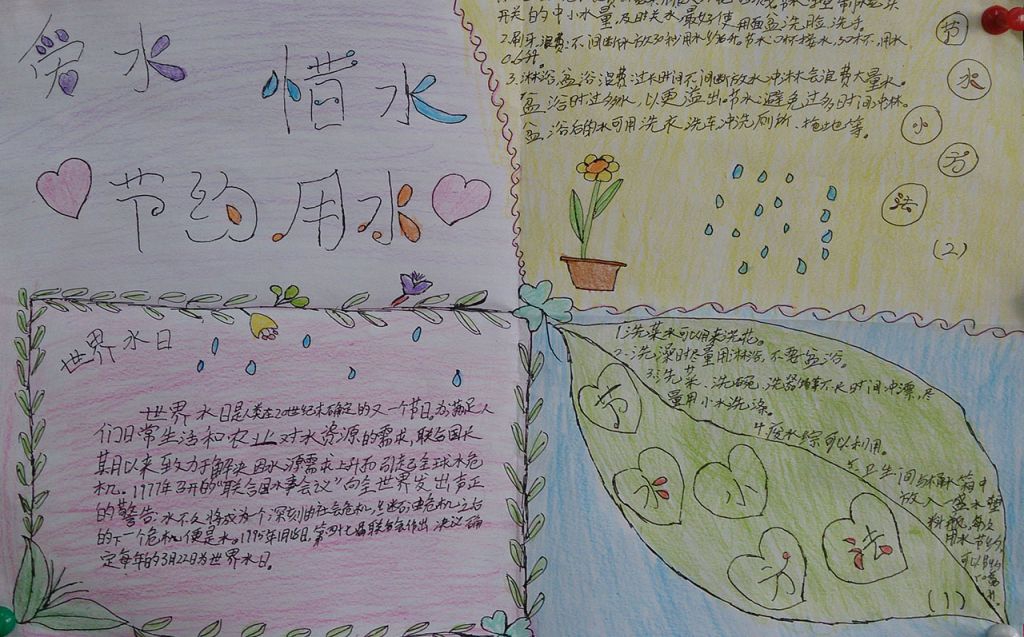 爱水
惜水
节约用水
开关的中小水量,及时关水。最好使用面盆洗脸、洗手。
2.刷牙,浪费:不间断放水30秒用水
0.6升。
3.淋浴,盆浴浪费:过长时间不间断放水冲淋会浪费大量水。
盆浴时过多放水,以更溢出。节水:避免过多时间冲淋。
盆浴后的水可用洗衣、洗车、冲洗厕所、拖地等。
节
水
小
方
法
(2)
世界水日
世界水日是人类在20世纪末确定的又一个节日。为满足人
们日常生活和农业对水资源的需求,联合国长
期以来致力于解决因水源需求上升而引起全球水危
机。1977年召开的“联合国水事会议”向全世界发出严正
的警告:水不久将成为一个深刻的社会危机,
的下一个危机便是水。
定每年的3月22日为世界水日。
1.洗菜水可以用来洗花。
2.洗澡时尽量用淋浴,不要盆浴。
3.洗菜、洗碗、洗器
量用小水洗涤。
4.废水综可以利用。
5.卫生间
放入
用水
节
水
小
方
法
(1)